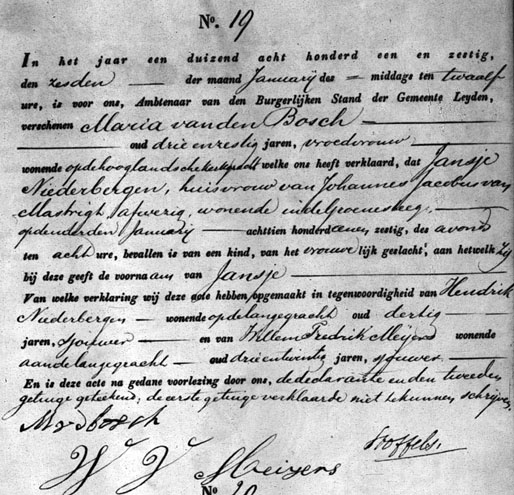 No. 19
In het jaar een duizend acht honderd een en zestig,
den zesden der maand Januarij des middags ten twaalf
ure, is voor ons, Ambtenaar van den Burgerlijken Stand der Gemeente Leyden,
verschenen Maria van den Bosch
oud drie en zestig jaren, vroedvrouw
wonende op de hooglandsche kerkgraft welke ons heeft verklaard, dat Jansje
Niederbergen, huisvrouw van Johannes Jacobus van
Mastrigh, afwezig, wonende in de Groenesteeg,
op den derden Januarij achttien honderd een en zestig, des avonds
ten acht ure, bevallen is van een kind, van het vrouwelijk geslacht, aan hetwelk zij
bij deze geeft de voornaam van Jansje
Van welke verklaring wij deze acte hebben opgemaakt in tegenwoordigheid van Hendrik
Niederbergen wonende op de langegracht oud dertig
jaren, sjouwer en van Willem Fredrik Meijers wonende
aan de langegracht oud drie en twintig jaren, sjouwer
En is deze acte na gedane voorlezing door ons, de declarante en den tweeden
getuige geteekend, de eerste getuige verklaarde niet te kunnen schrijven.
M v d bosch
Stoffels.
W F Meijers
No. 20